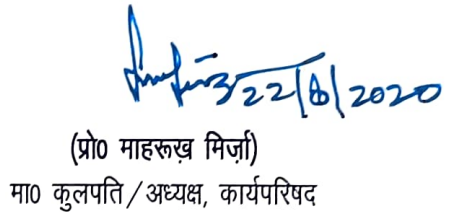 22/6/2020
(प्रो0 माहरूख़ मिर्ज़ा)
मा0 कुलपति/अध्यक्ष, कार्यपरिषद